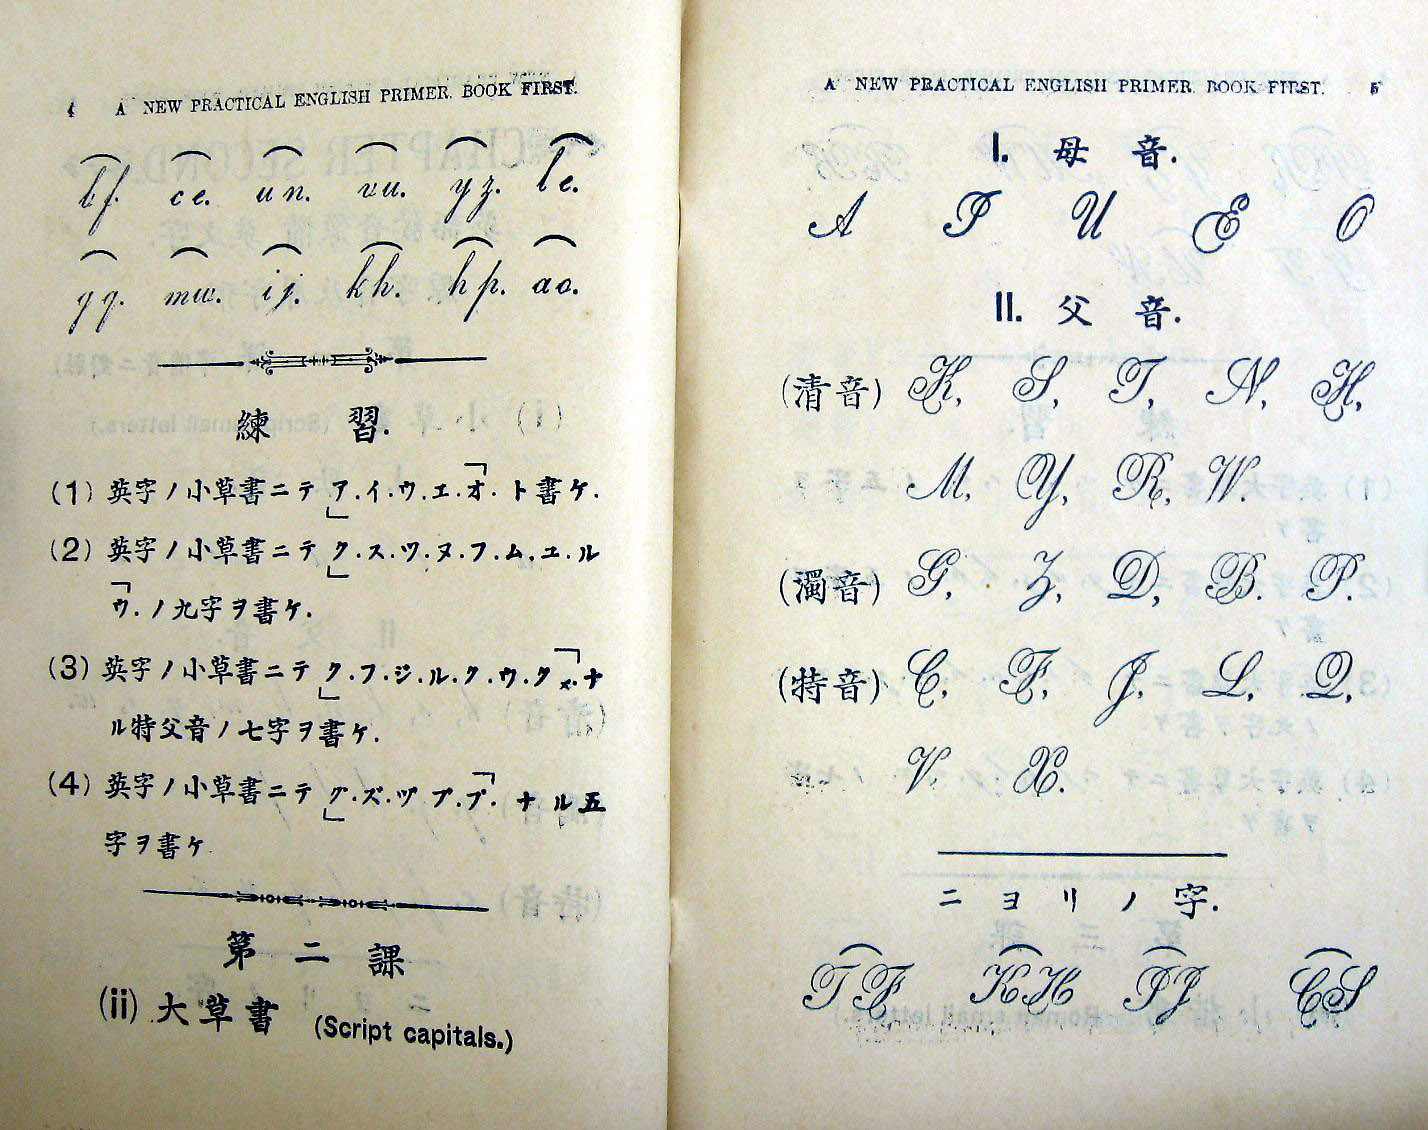 4 A NEW PRACTICAL ENGLISH PRIMER. BOOK FIRST.
tf. ce. un. vu. yz. le.
gq. mw. ij. kh. hp. ao.
練習.
(1) 英字ノ小草書ニテ「ア.イ.ウ.エ.オ」ト書ケ.
(2) 英字ノ小草書ニテ「ク.ス.ツ.ヌ.フ.ム.ユ.ル
ウ」.ノ九字ヲ書ケ.
(3) 英字ノ小草書ニテ「ク.フ.ジ.ル.ク.ウ.クス」.ナ
ル特父音ノ七字ヲ書ケ.
(4) 英字ノ小草書ニテ「グ.ズ.ヅ ブ.プ」. ナル五
字ヲ書ケ
第二課
(ii) 大草書 (Script capitals.)
A NEW PRACTICAL ENGLISH PRIMER. BOOK FIRST. 5
I. 母音.
A I U E O
II. 父音.
(清音) K, S, T, N, H,
M, Y, R, W.
(濁音) G, Z, D, B. P.
(特音) C, F, J, L, Q,
V X.
ニヨリノ字.
TF KH IJ CS